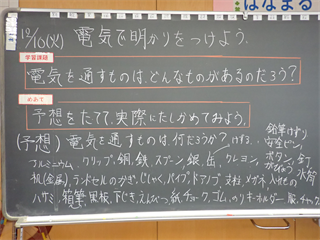 はなまる
12/10(火) 電気で明かりをつけよう.
学習課題
電気を通すものは、どんなものがあるのだろう?
めあて
予想をたてて、実際にたしかめてみよう.
(予想) 電気を通すものは、何だろうか?
鉛筆けずり
安全ピン
アルミニウム, クリップ, 銅, 鉄, スプーン, 銀, 缶, クレヨン, ボタン, 釘
机(金属), ランドセルのかぎ, じしゃく, パイプ, ドアノブ, 支柱, メガネ, 水筒
ハサミ, 箱, 筆, 黒板, 下じき, えんぴつ, 紙, チョーク, ゴム, のり, キーホルダー, 服